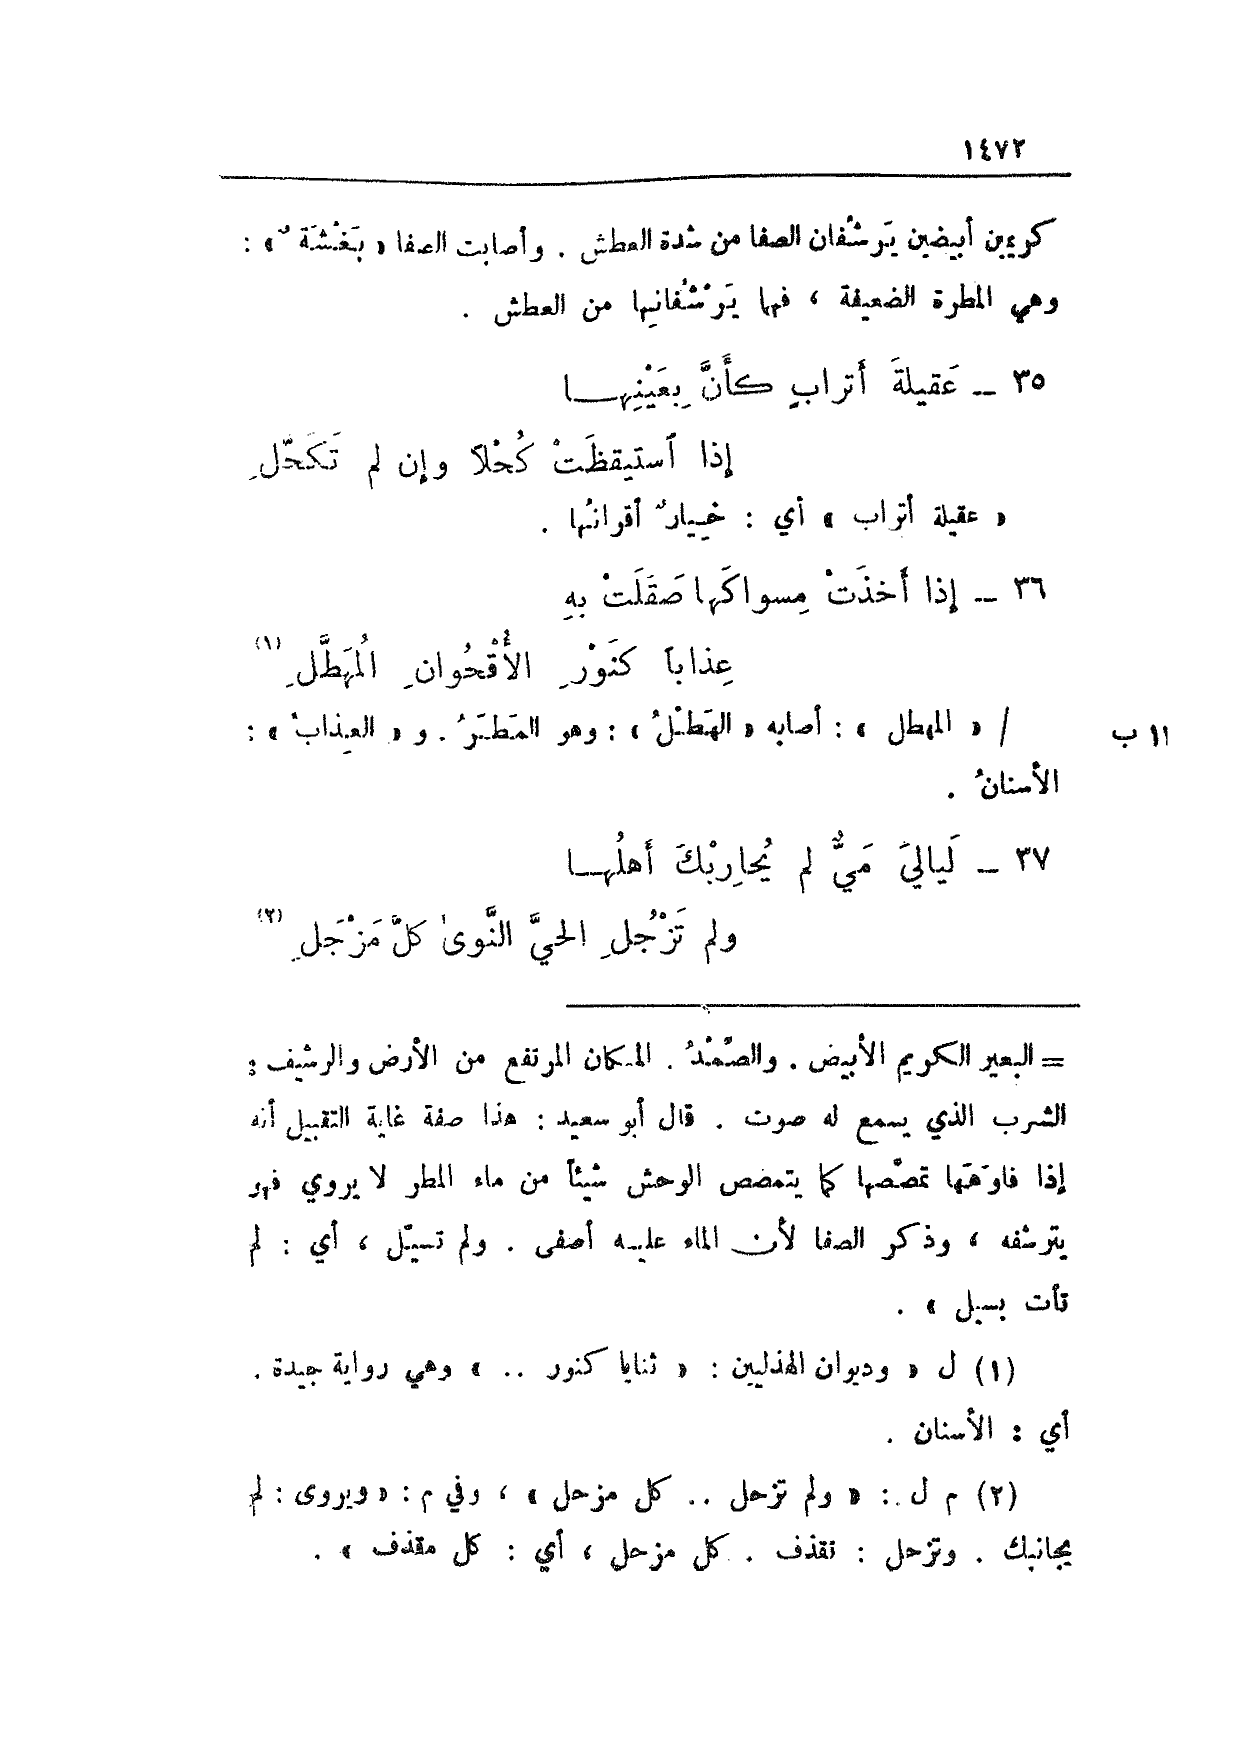 ١٤٧٢
كريمين أبيضين يَرشُفان الصفا من شدة العطش . وأصابت الصفا « بَغْشَةٌ » :
وهي المطرة الضعيفة ، فهما يَرْشُفانِها من العطش .
٣٥ ــ عَقيلةَ أَترابٍ كأَنَّ بِعَيْنِهـــا
إذا ٱستيقظَتْ كُحْلاً وإن لم تَكَحَّلِ
« عقيلة أتراب » أي : خِيارُ أقرانِها .
٣٦ ــ إذا أَخذَتْ مِسواكَها صَقَلَتْ بِهِ
عِذاباً كنَوْرِ الأُقْحُوانِ المُهَطَّلِ (١)
١١ ب / « المهطل » : أصابه « الهَطْلُ » : وهو المَطَرُ . و « العِذابُ » :
الأسنانُ .
٣٧ ــ لَياليَ مَيٌّ لم يُحارِبْكَ أَهلُهـــا
ولم تَزْجُلِ الحيَّ النَّوىٰ كلَّ مَزْجَلِ (٢)
= البعير الكريم الأبيض . والصَّمْدُ . المكان المرتفع من الأرض والرشيف :
الشرب الذي يسمع له صوت . قال أبو سعيد : هذا صفة غاية التقبيل أنه
إذا فاوَهَها تمصّصها كما يتمصص الوحش شيئاً من ماء المطر لا يروي فهو
يترشفه ، وذكر الصفا لأن الماء عليه أصفى . ولم تسيّل ، أي : لم
تأت بسيل » .
(١) ل « وديوان الهذليين : « ثنايا كنور .. » وهي رواية جيدة .
أي : الأسنان .
(٢) م ل : « ولم تزحل .. كل مزحل » ، وفي م : « ويروى : لم
يجانبك . وتزحل : تقذف . كل مزحل ، أي : كل مقذف » .